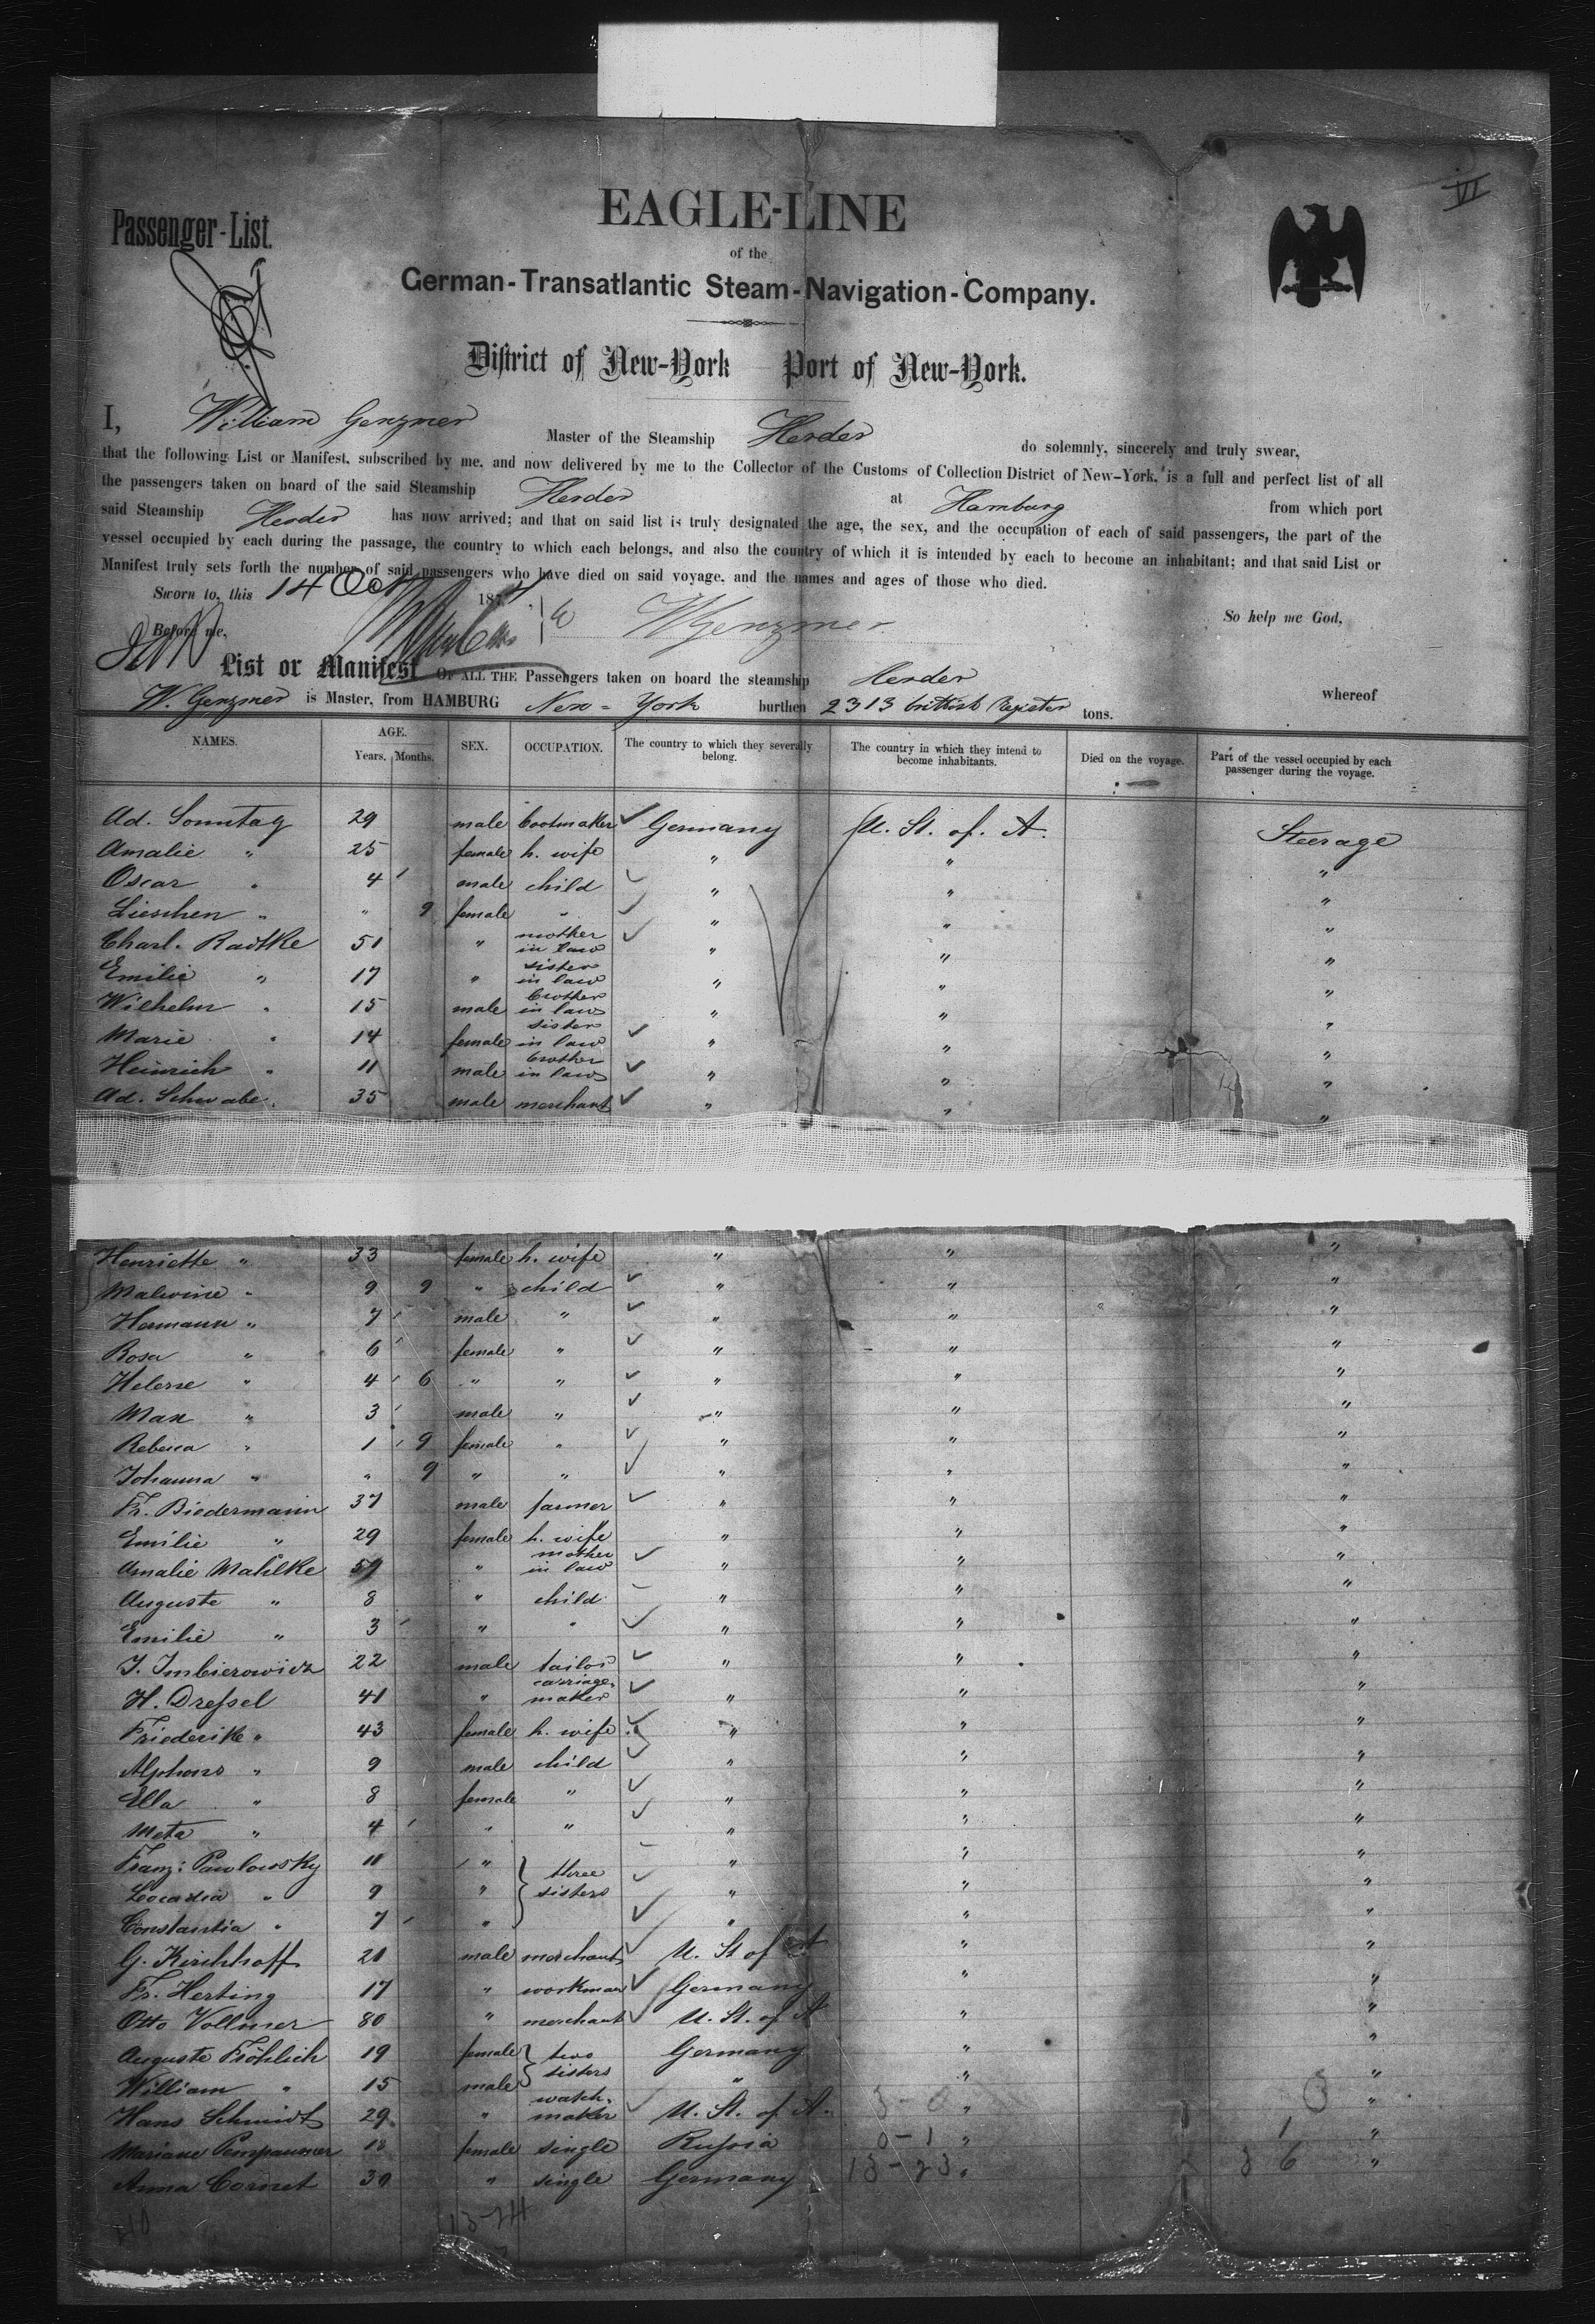 VI
Passenger-List.
EAGLE-LINE
of the
German-Transatlantic Steam-Navigation-Company.
District of New-York Port of New-York.
I, William Genzmer Master of the Steamship Herder do solemnly, sincerely and truly swear,
that the following List or Manifest, subscribed by me, and now delivered by me to the Collector of the Customs of Collection District of New-York, is a full and perfect list of all
the passengers taken on board of the said Steamship Herder at Hamburg from which port
said Steamship Herder has now arrived; and that on said list is truly designated the age, the sex, and the occupation of each of said passengers, the part of the
vessel occupied by each during the passage, the country to which each belongs, and also the country of which it is intended by each to become an inhabitant; and that said List or
Manifest truly sets forth the number of said passengers who have died on said voyage, and the names and ages of those who died.
Sworn to, this 14 Oct 187
So help me God,
Before me, WGenzmer
List or Manifest OF ALL THE Passengers taken on board the steamship Herder whereof
W. Genzmer is Master, from HAMBURG New-York burthen 2313 brittish Register tons.
NAMES. AGE. Years. Months. SEX. OCCUPATION. The country to which they severally belong. The country in which they intend to become inhabitants. Died on the voyage. Part of the vessel occupied by each passenger during the voyage.
Ad. Sonntag 29 male bootmaker Germany U. St. of. A. Steerage
Amalie " 25 female h. wife " " "
Oscar " 4 male child " " "
Lieschen " " 9 female " " " "
Charl. Radtke 51 " mother in law " " "
Emilie " 17 " sister in law " " "
Wilhelm " 15 male brother in law " " "
Marie " 14 female sister in law " " "
Heinrich " 11 male brother in law " " "
Ad. Schwabe 35 male merchant " " "
Henriette " 33 female h. wife " " "
Malwine " 9 9 " child " " "
Hermann " 7 male " " " "
Rosa " 6 female " " " "
Helene " 4 6 " " " " "
Max " 3 male " " " "
Rebeca " 1 9 female " " " "
Johanna " " 9 " " " " "
Fr. Biedermann 37 male farmer " " "
Emilie " 29 female h. wife " " "
Amalie Mahlke 59 " mother in law " " "
Auguste " 8 " child " " "
Emilie " 3 " " " " "
J. Imbierowicz 22 male tailor " " "
H. Dreßel 41 " carriage-maker " " "
Friederike " 43 female h. wife " " "
Alphons " 9 male child " " "
Ella " 8 female " " " "
Meta " 4 " " " " "
Franz: Pawlowsky 11 " three sisters " " "
Locadia " 9 " " " "
Constantia " 7 " " " "
G. Kirchhoff 21 male merchant U. St of A " "
Fr. Herting 17 " workman Germany " "
Otto Vollmer 80 " merchant U. St. of A " "
Auguste Fröhlich 19 female two sisters Germany " "
William " 15 male " " "
Hans Schmidt 29 " watch-maker U. St. of A. " "
Mariane 18 female single Rußia " "
Anna Cornet 30 " single Germany " "